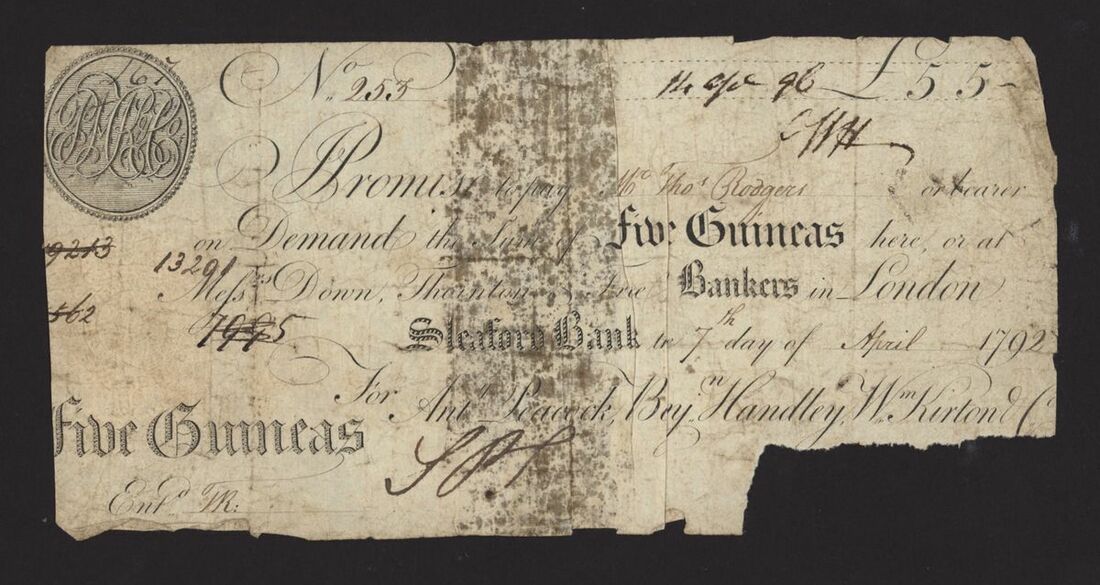 No. 253 £ 5 5 -
I Promise to pay Mr. Thos Rodgers or bearer
on Demand the Sum of Five Guineas here, or at
9213
13291
Messrs. Down, Thornton Free Bankers in London
562
7995
Sleaford Bank the 7th day of April 1792
For Antr. Peacock, Benjn. Handley, Wm. Kirton & Co
Five Guineas
Entd. TR: